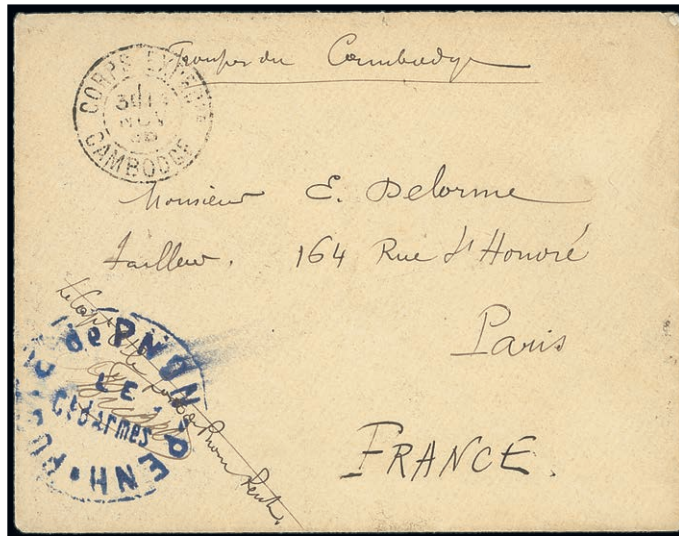 Troupes du Cambodge
CORPS EXPEDRE
CAMBODGE
Monsieur E. Delorme
Tailleur. 164 Rue St Honoré
Paris
FRANCE.
de PNON-PENH
LE
Ct d'armes